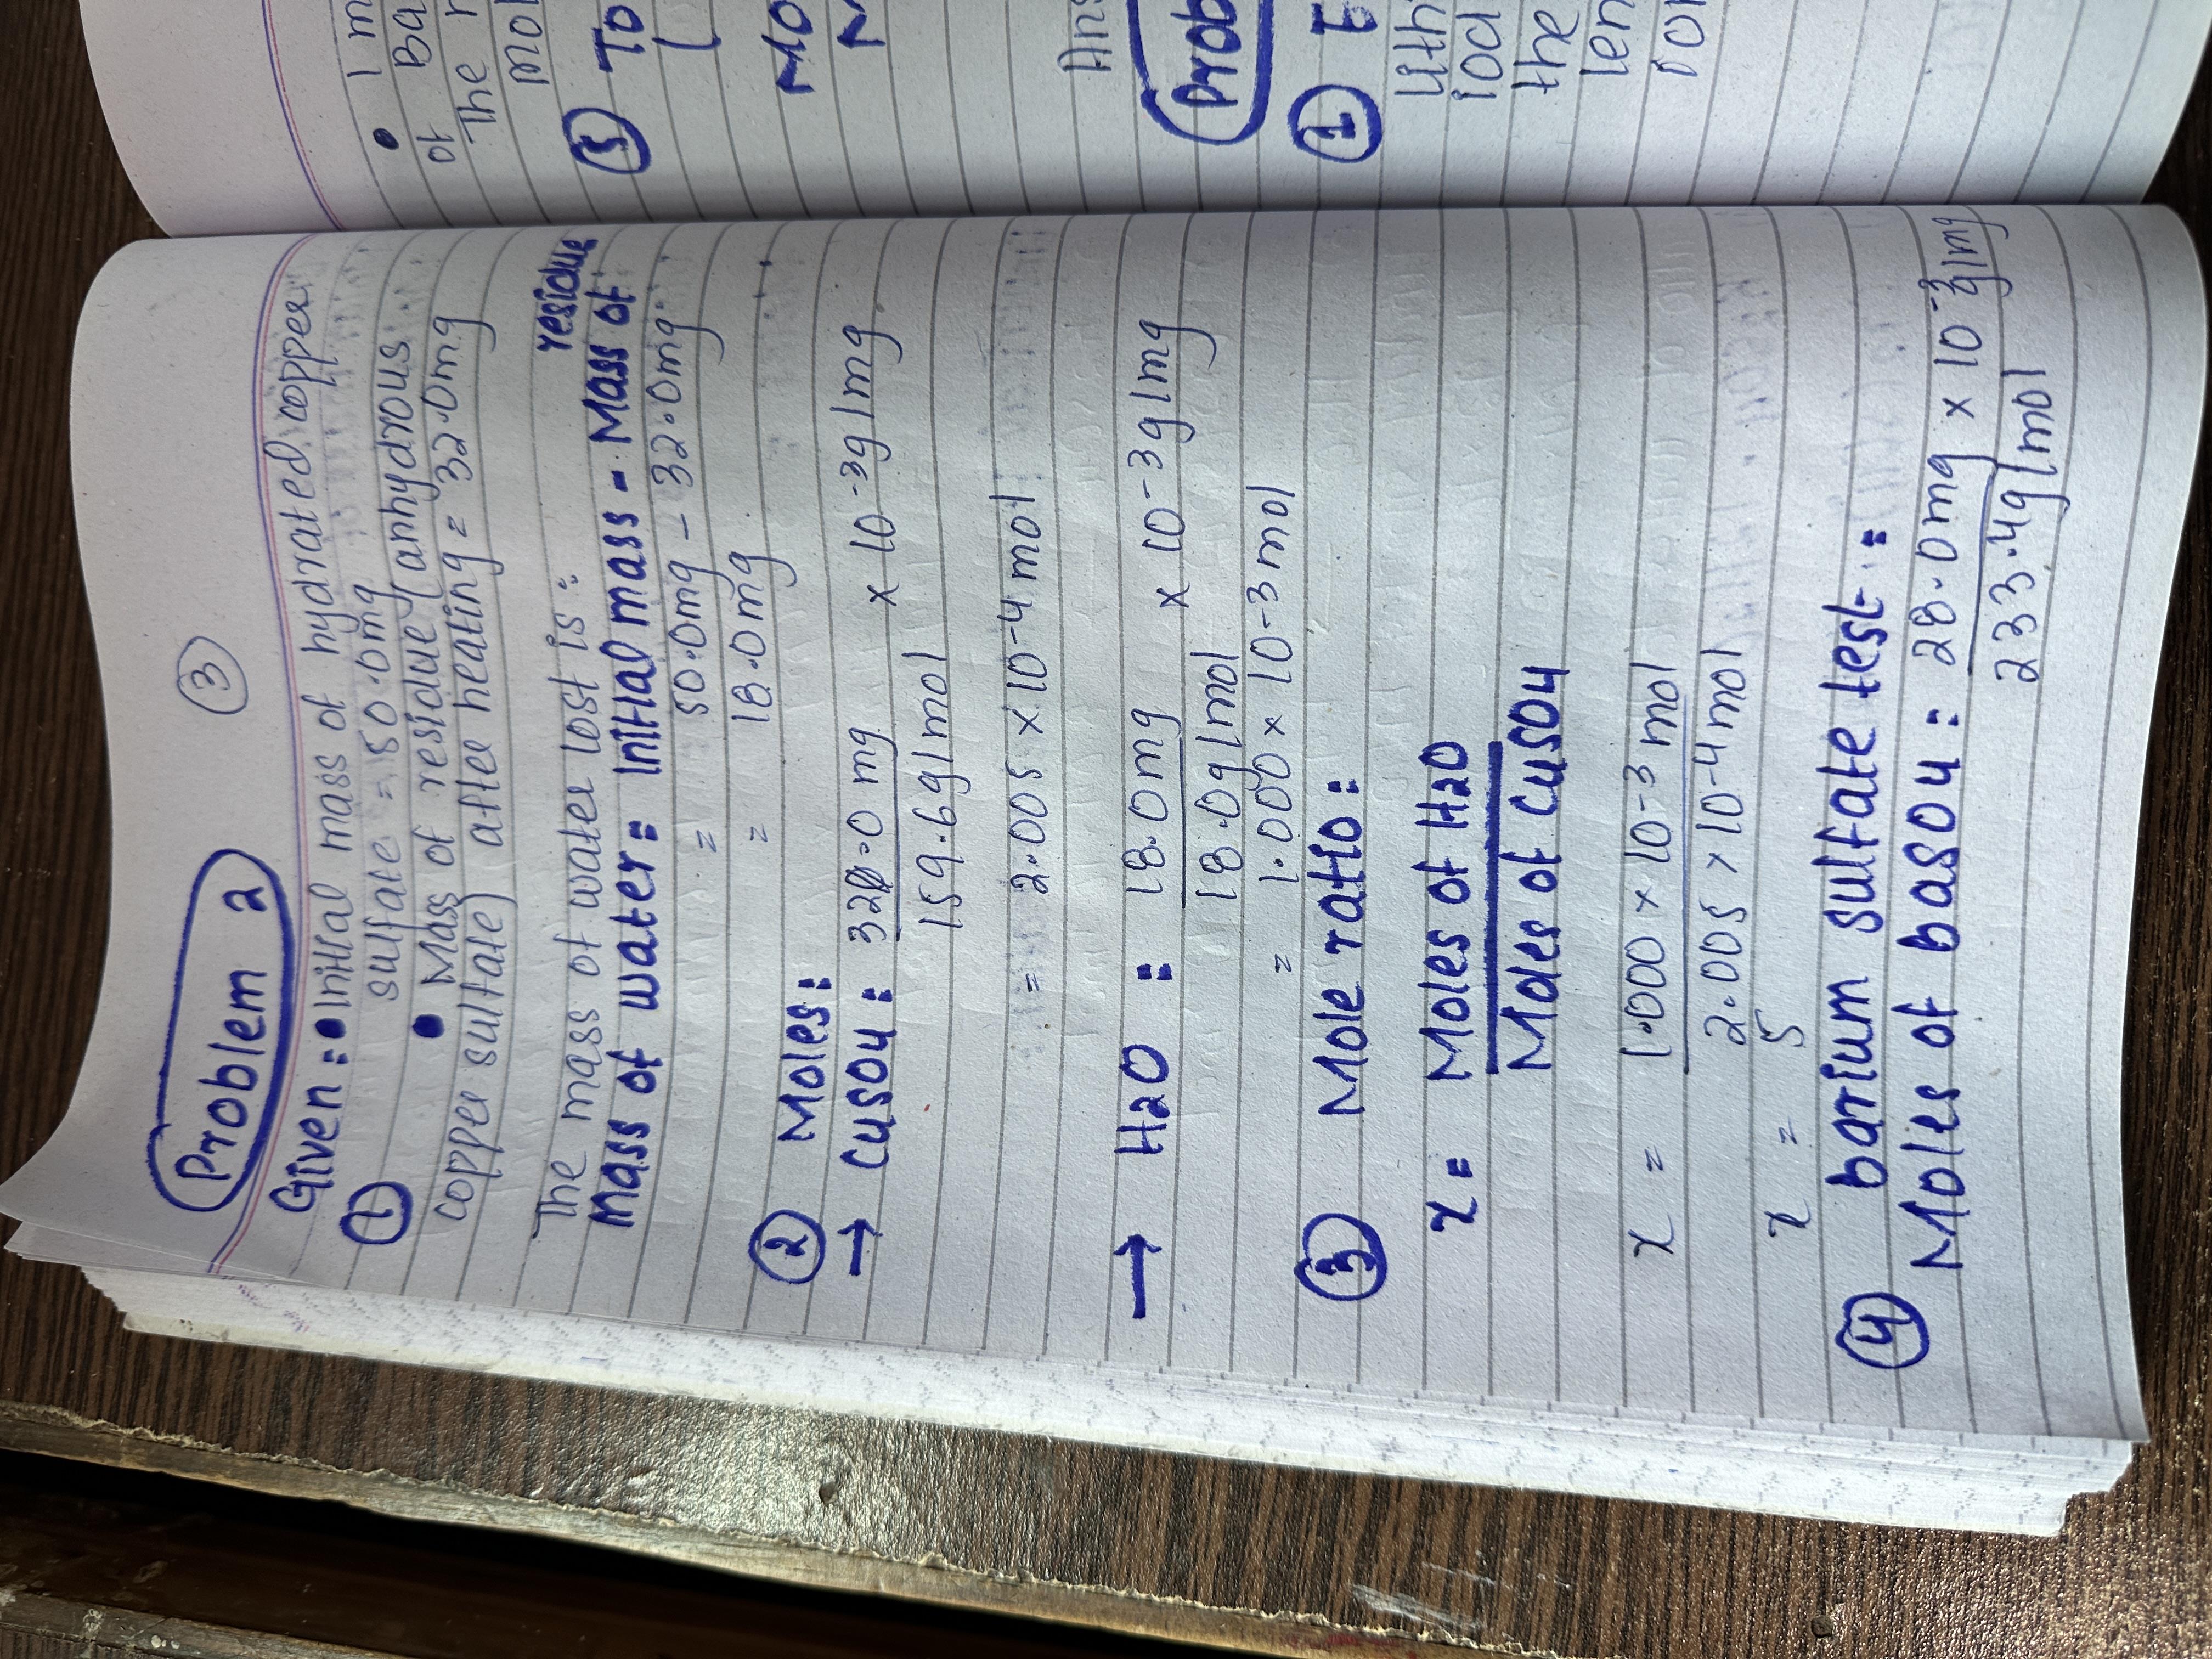 ③
Problem 2
Given: • Initial mass of hydrated copper
① sulfate = 50.0mg
• Mass of residue (anhydrous
copper sulfate) after heating = 32.0mg
The mass of water lost is:
residue
Mass of water: Initial mass - Mass of
= 50.0mg - 32.0mg
= 18.0mg
② Moles:
→ CuSO4: 32.0 mg × 10-3g/mg
159.6g/mol
= 2.005 × 10-4 mol
→ H2O : 18.0mg × 10-3g/mg
18.0g/mol
= 1.000 × 10-3 mol
③ Mole ratio:
x = Moles of H2O
Moles of CuSO4
x = 1.000 × 10-3 mol
2.005 × 10-4 mol
x = 5
④ barium sulfate test:
Moles of baSO4: 28.0mg × 10-3g/mg
233.4g/mol
• 1 m
of Ba
The r
mol
⑤ To
(
Mo
Ans
Prob
① E
the
len